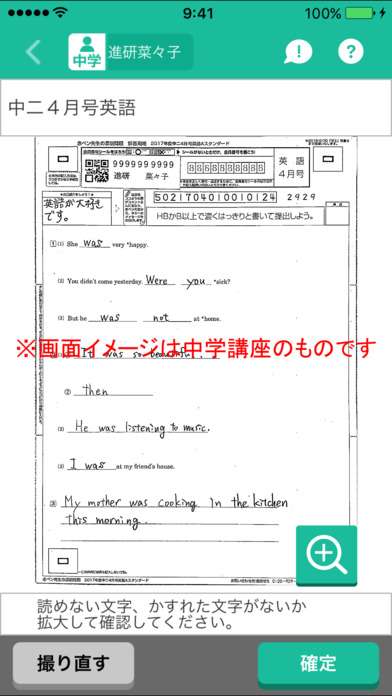 9:41
100%
中学
進研菜々子
中二４月号英語
9999999999
進研 菜々子
英語
4月号
英語が大好き
です。
502170401001 0124 2929
HBかB以上で濃くはっきりと書いて提出しよう。
1 (1) She was very *happy.
(2) You didn't come yesterday. Were you *sick?
(3) But he was not at *home.
※画面イメージは中学講座のものです
It was so beautiful.
② then
(2) He was listening to music.
(3) I was at my friend's house.
3 My mother was cooking in the kitchen
this morning.
読めない文字、かすれた文字がないか
拡大して確認してください。
撮り直す
確定